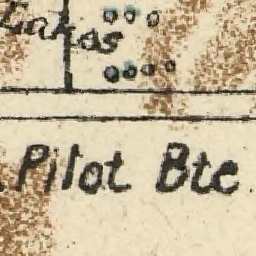 Lakes
Pilot Bte.